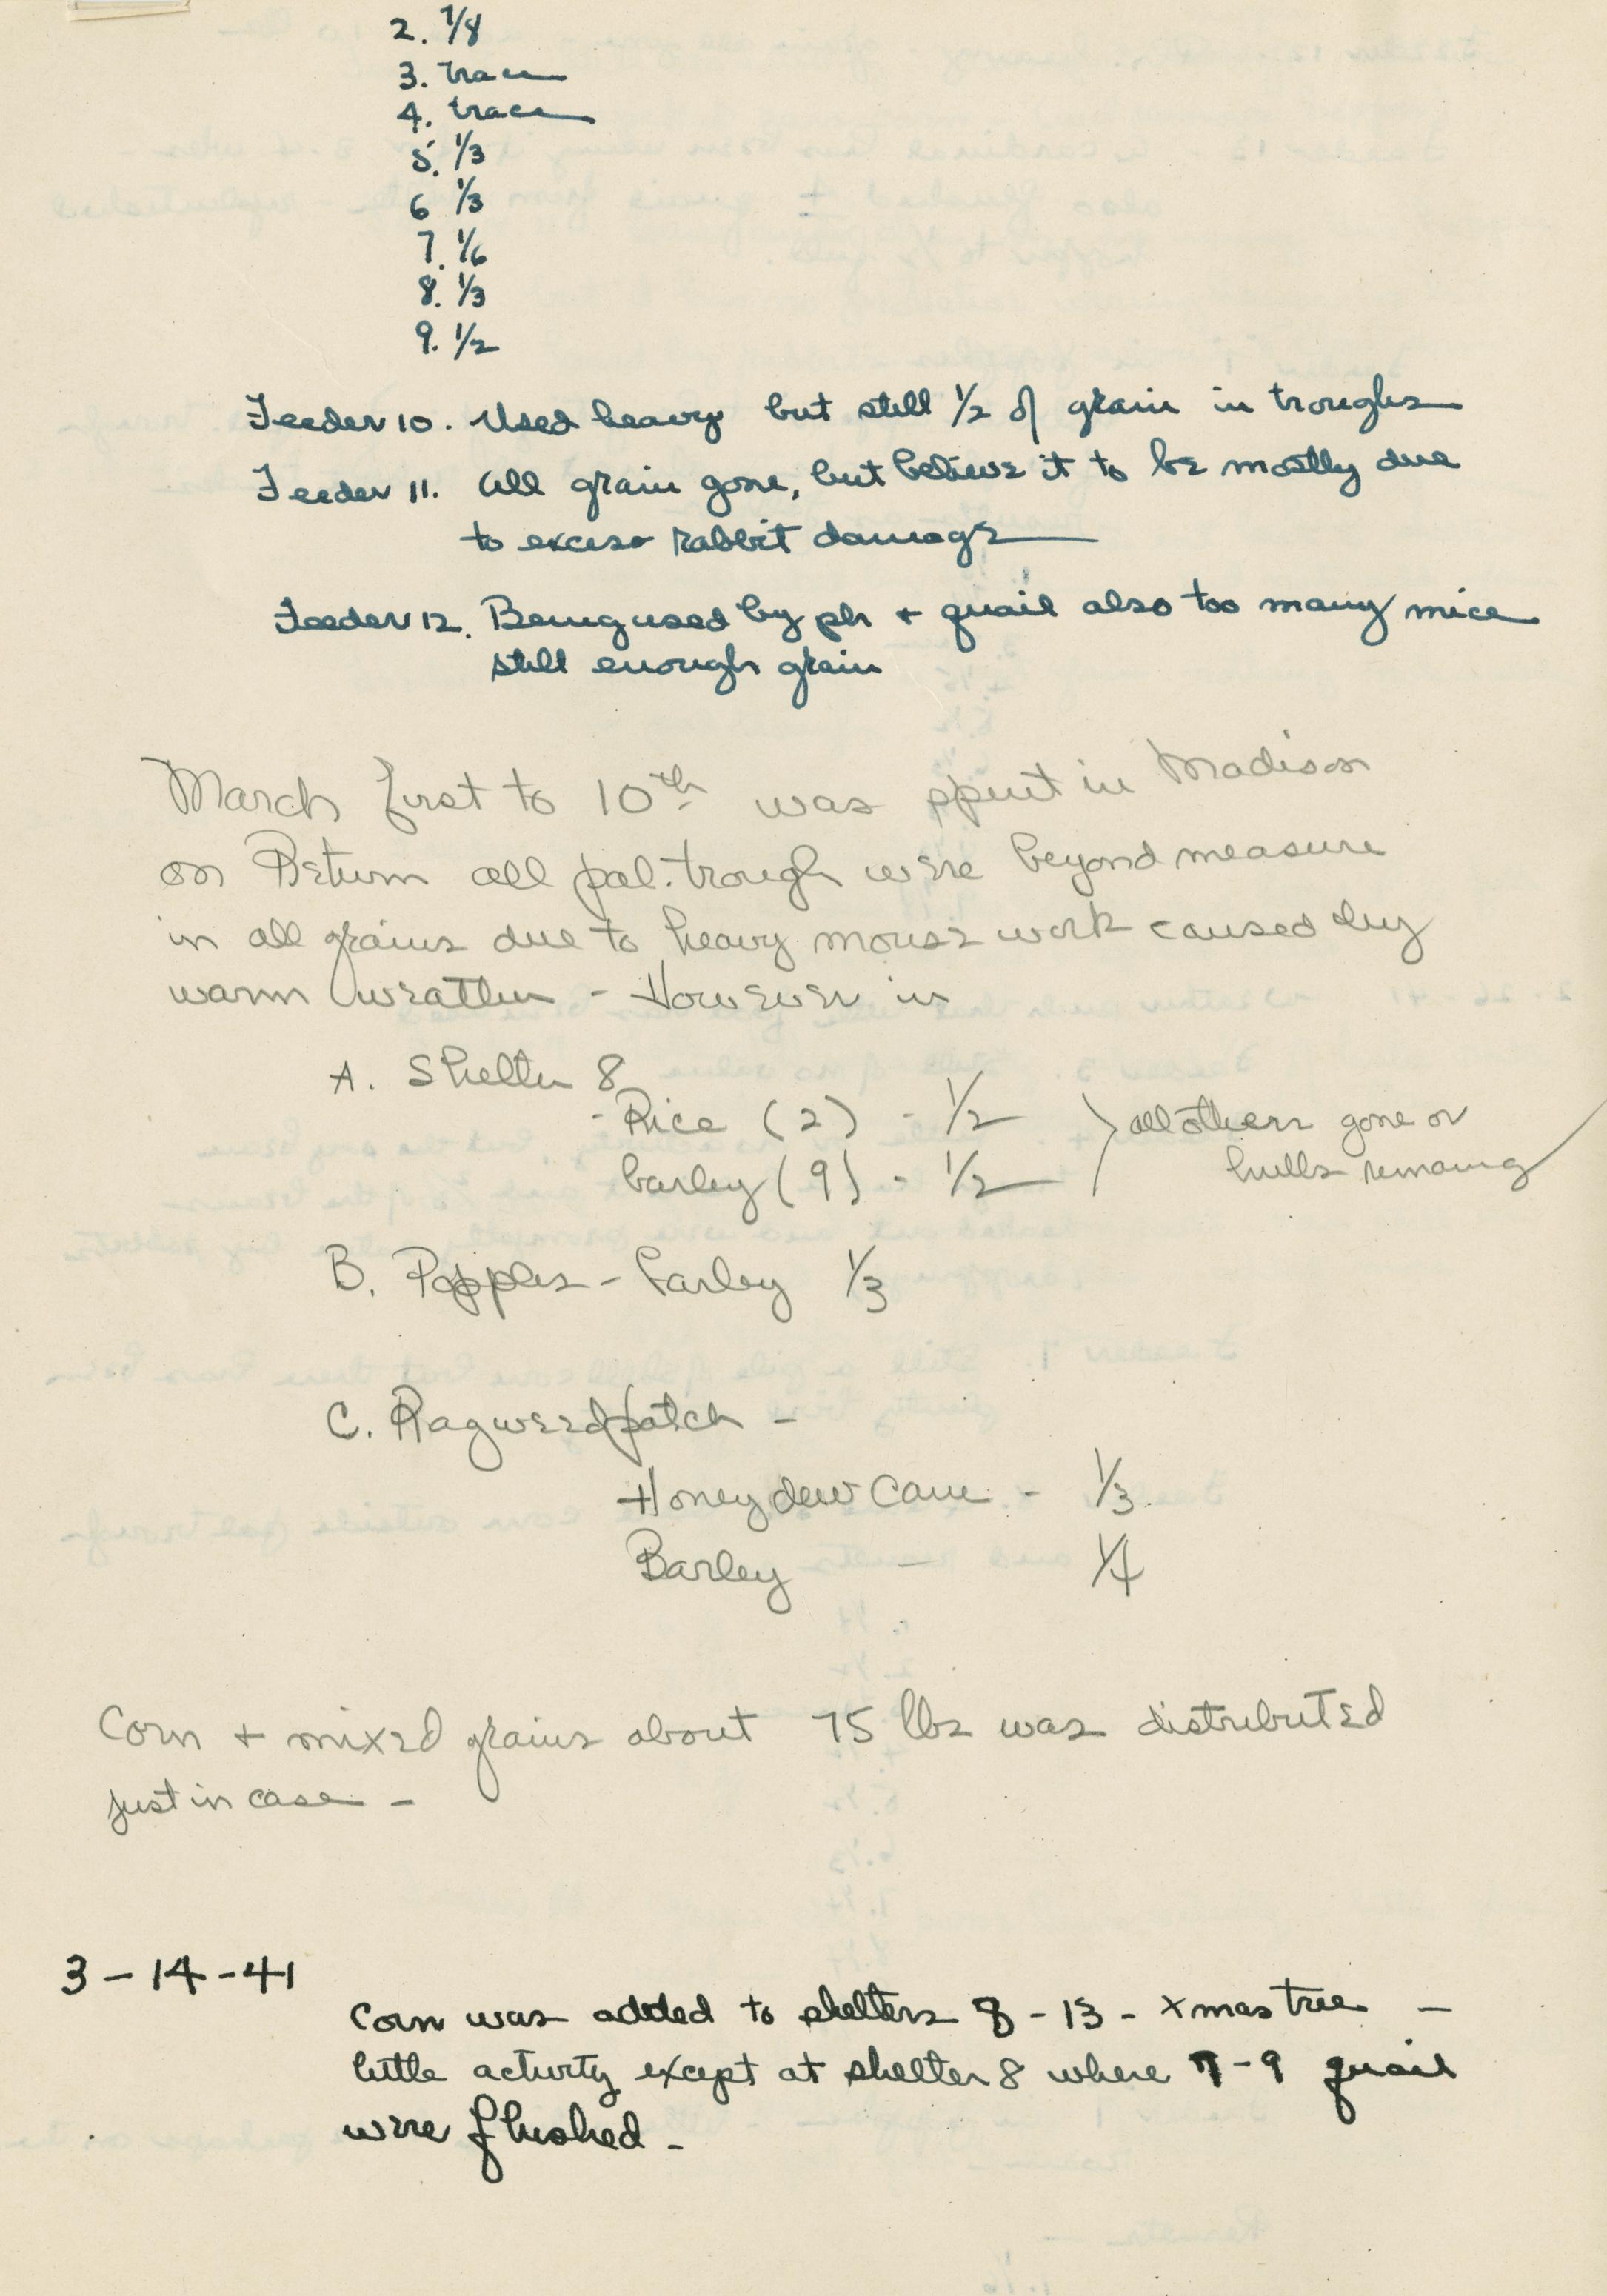 2. 7/8
3. trace
4. trace
5. 1/3
6 1/3
7. 1/6
8. 1/3
9. 1/2
Feeder 10. Used heavy but still 1/2 of grain in troughs
Feeder 11. All grain gone, but believe it to be mostly due
to excess rabbit damage
Feeder 12. Being used by ph + quail also too many mice
still enough grain
March first to 10th was spent in Madison
on Return all pal. trough were beyond measure
in all grains due to heavy mouse work caused by
warm weather - However in
A. Shelter 8
- Rice (2) - 1/2 } all others gone or
barley (9) - 1/2 hulls remaing
B. Popples - barley 1/3
C. Ragweed patch -
Honey dew Cane - 1/3
Barley - 1/4
Corn + mixed grains about 75 lbs was distributed
just in case -
3-14-41
Corn was added to shelters 8 - 13 - Xmas tree -
little activity except at shelter 8 where 7-9 quail
were flushed -